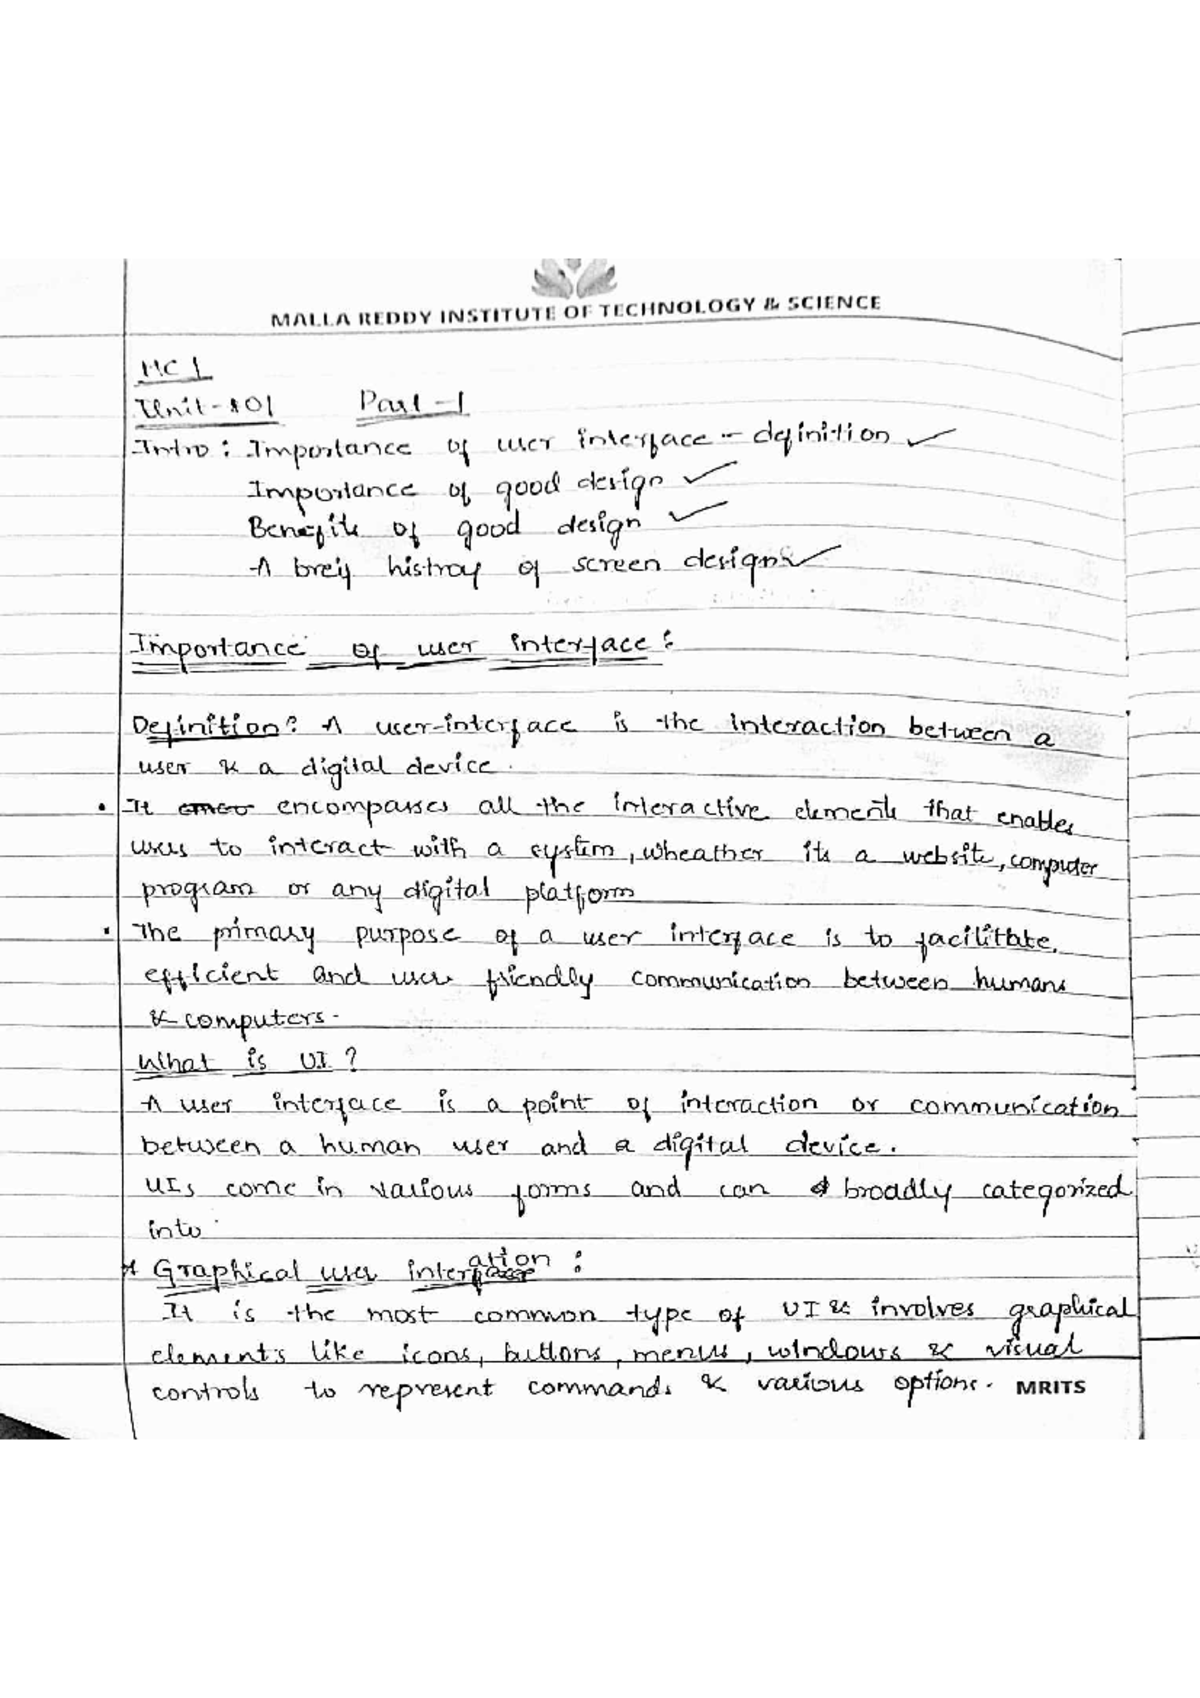 MALLA REDDY INSTITUTE OF TECHNOLOGY & SCIENCE
HCI
Unit-01 Part-1
Intro: Importance of user interface - definition ✓
Importance of good design ✓
Benefits of good design ✓
A breif histroy of screen design ✓
Importance of user interface:
Definition: A user-interface is the interaction between a
user & a digital device.
• It encompasses all the interactive elements that enables
users to interact with a system, wheather its a website, computer
program or any digital platform
• The primary purpose of a user interface is to facilitate
efficient and user friendly communication between humans
& computers.
What is UI?
A user interface is a point of interaction or communication
between a human user and a digital device.
UIs come in various forms and can broadly categorized
into
* Graphical user interation:
It is the most common type of UI & involves graphical
elements like icons, buttons, menus, windows & visual
controls to represent commands & various options. MRITS